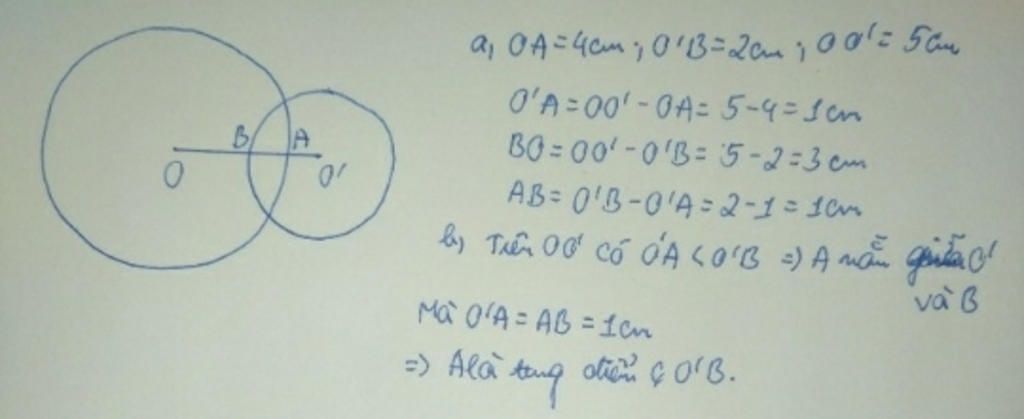 a, OA = 4cm ; O'B = 2cm ; OO' = 5cm
O'A = OO' - OA = 5 - 4 = 1cm
BO = OO' - O'B = 5 - 2 = 3cm
AB = O'B - O'A = 2 - 1 = 1cm
b, Trên OO' có O'A < O'B => A nằm giữa O'
và B
Mà O'A = AB = 1cm
=> A là trung điểm ç O'B.
B A
O O'